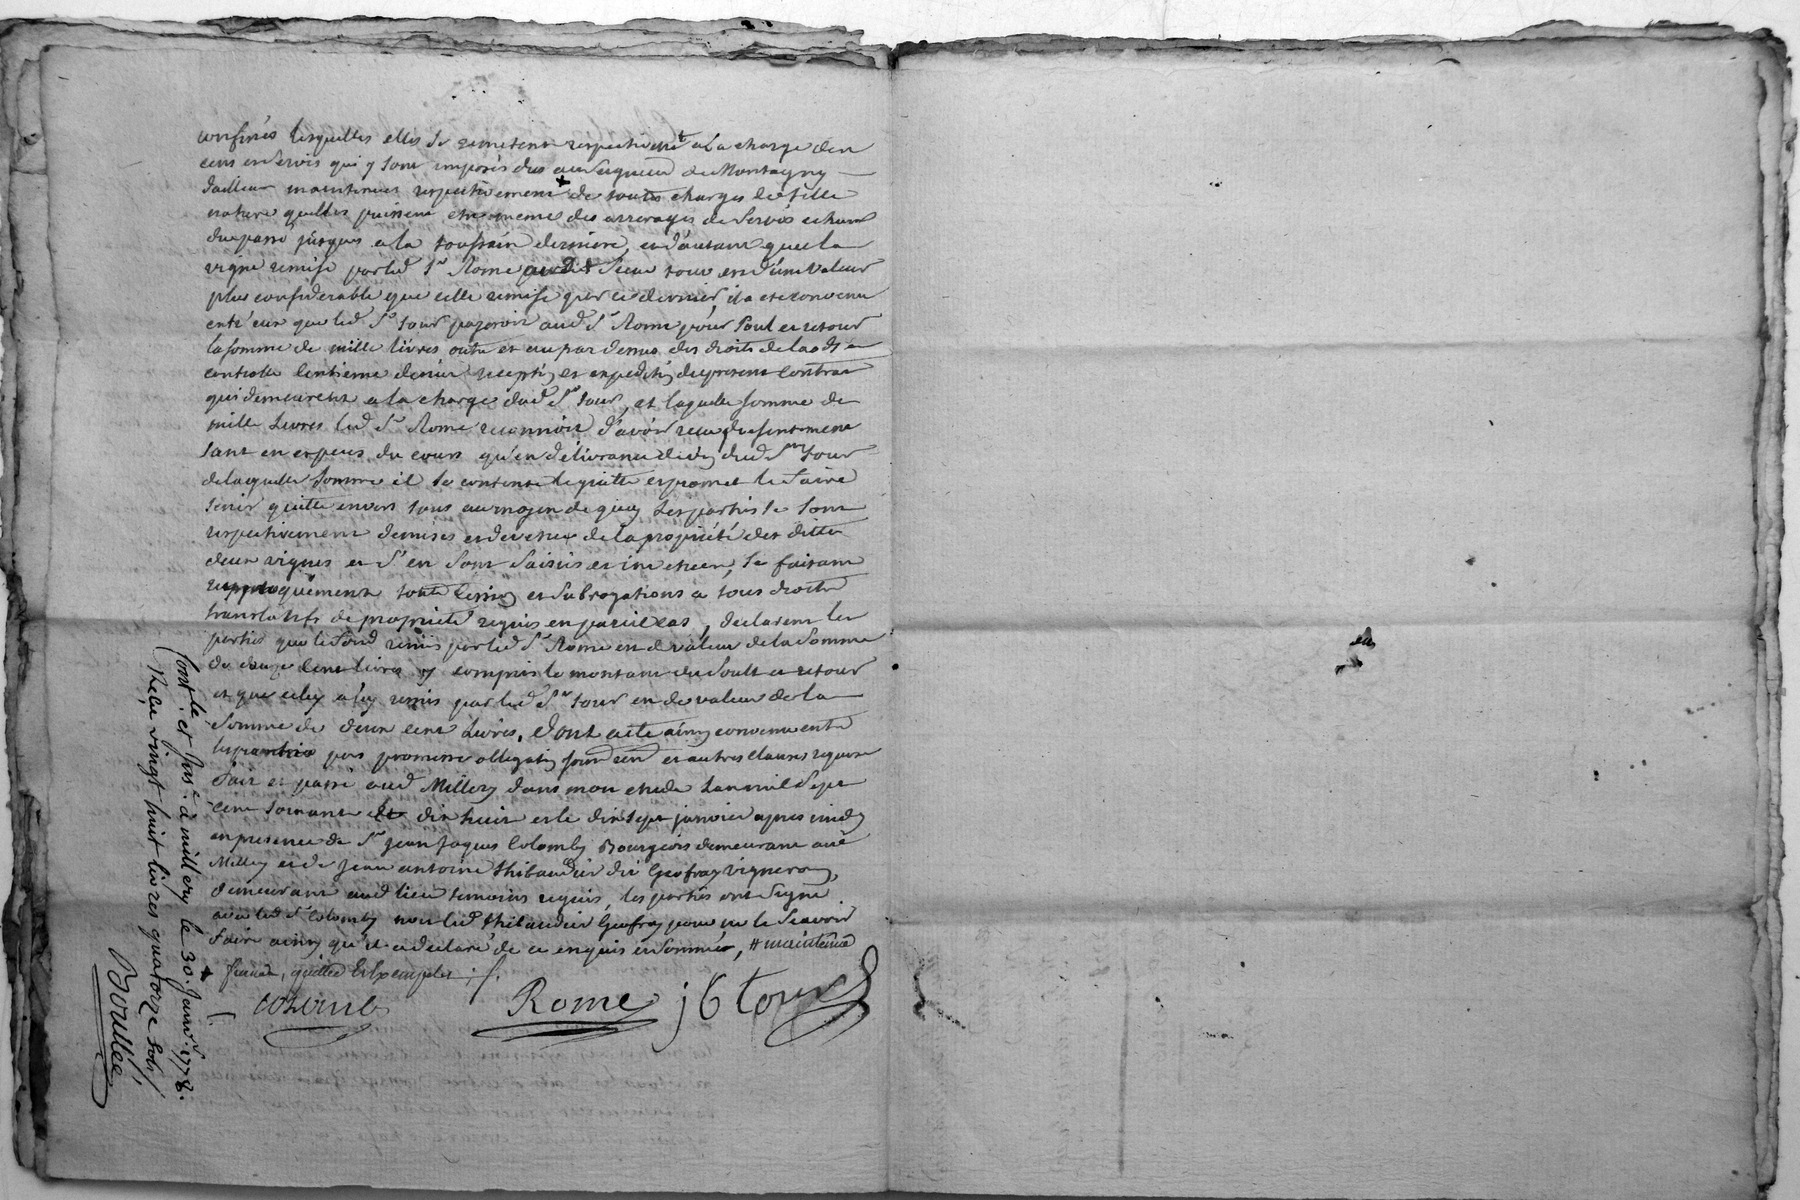 confinés lesquelles elles se remettent respectivemt a la charge des
cens et servis qui y sont imposés dus au seigneur de Montagny
dailleur maintenues respectivement + de toutes charges de telle
nature quelles puissent etre meme des arrerages de servis echus
du passé jusques a la toussain derniere, et d'autant que la
vigne remise par led Sr Rome audit Sieur tour est d'une valeur
plus considerable que celle remise par ce dernier, il a eté convenu
entr'eux que led Sr tour payeroit aud Sr Rome pour soul et retour
la somme de mille livres outre et au par dessus des droits de laods
controlle centieme denier reception et expedition du present contrat
qui demeurent a la charge dud Sr tour, et laquelle somme de
mille Livres led Sr Rome reconnoit d'avoir recu presentement
tant en especes du cours qu'en delivrance dud Sr tour
de laquelle somme il se contente le quitte et promet le faire
tenir quitte envers tous au moyen de quoy les parties se sont
respectivement demises et devetues de la propriété des dittes
deux vignes et s'en sont saisies et investies, se faisant
reciproquement toute cession et subrogations a tous droits
translatifs de propriété requis en pareil cas, declarent les
parties que le fond remis par led Sr Rome est de valeur de la somme
de douze cent livres y compris le montant du soult et retour
et que celuy a luy remis par led Sr tour est de valeur de la
somme de deux cent Livres, Dont acte ainsy convenu entre
les parties par promesse obligation soumon renon et autres clauses requises
fait et passé aud Millery dans mon etude Lan mil sept
cent soixante et dix huit et le dix sept janvier apres midy
en presence de Sr jean jaques Colomby Bourgeois demeurant aud
Millery et de Jean antoine thibaudier dit Geofray vigneron
demeurant aud lieu temoins requis, les parties ont signé
avec led Sr Colomby non led thibaudier Geofray pour ne le scavoir
faire ainsy qu'il a declaré de ce enquis et sommés, # maintenue
franche, quitte et exempte
Rome JG tour
Contlé et Insé à millery le 30. Janvr. 1778.
Recu vingt huit livres quatorze sols
Boullée